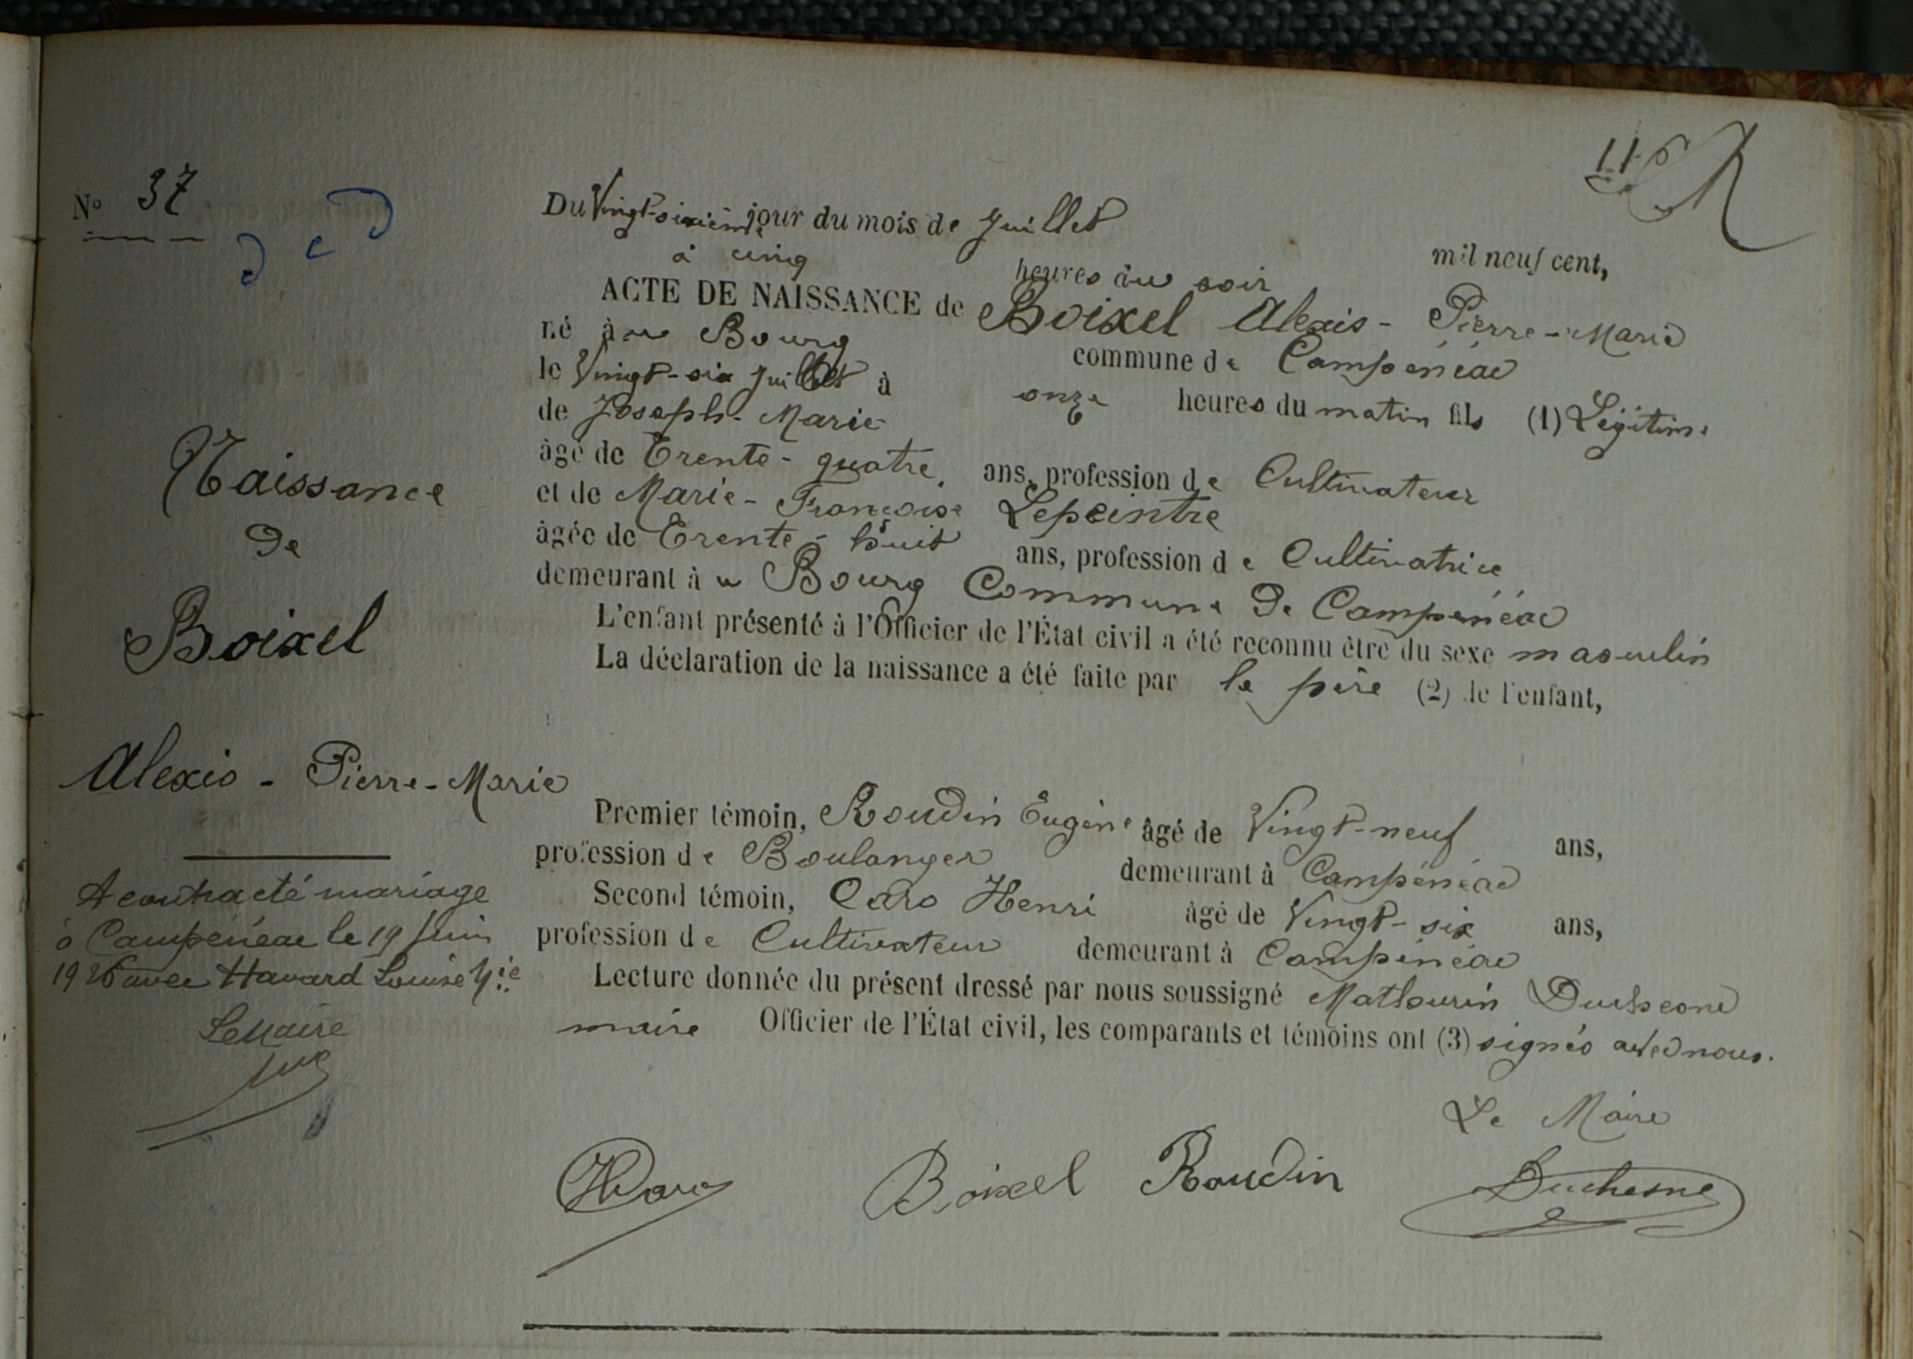 N° 37
Naissance
De
Boixel
Alexis - Pierre - Marie
A contracté mariage
à Campénéac le 19 Juin
1926 avec Havard Louise M.ie
Le Maire
Du Vingt-sixième jour du mois de Juillet mil neuf cent,
à cinq heures du soir
ACTE DE NAISSANCE de Boixel Alexis - Pierre - Marie
né au Bourg commune de Campénéac
le Vingt-six Juillet à onze heures du matin fils (1) Légitime
de Joseph - Marie
âgé de Trente - quatre ans, profession de Cultivateur
et de Marie - Françoise Lepeintre
âgée de Trente - huit ans, profession de Cultivatrice
demeurant au Bourg Commune De Campénéac
L'enfant présenté à l'Officier de l'État civil a été reconnu être du sexe masculin
La déclaration de la naissance a été faite par le père (2) de l'enfant,
Premier témoin, Roudin Eugène âgé de Vingt-neuf ans,
profession de Boulanger demeurant à Campénéac
Second témoin, Caro Henri âgé de Vingt-six ans,
profession de Cultivateur demeurant à Campénéac
Lecture donnée du présent dressé par nous soussigné Mathurin Duchesne
maire Officier de l'État civil, les comparants et témoins ont (3) signés avec nous.
Le Maire
HCaro Boixel Roudin Duchesne